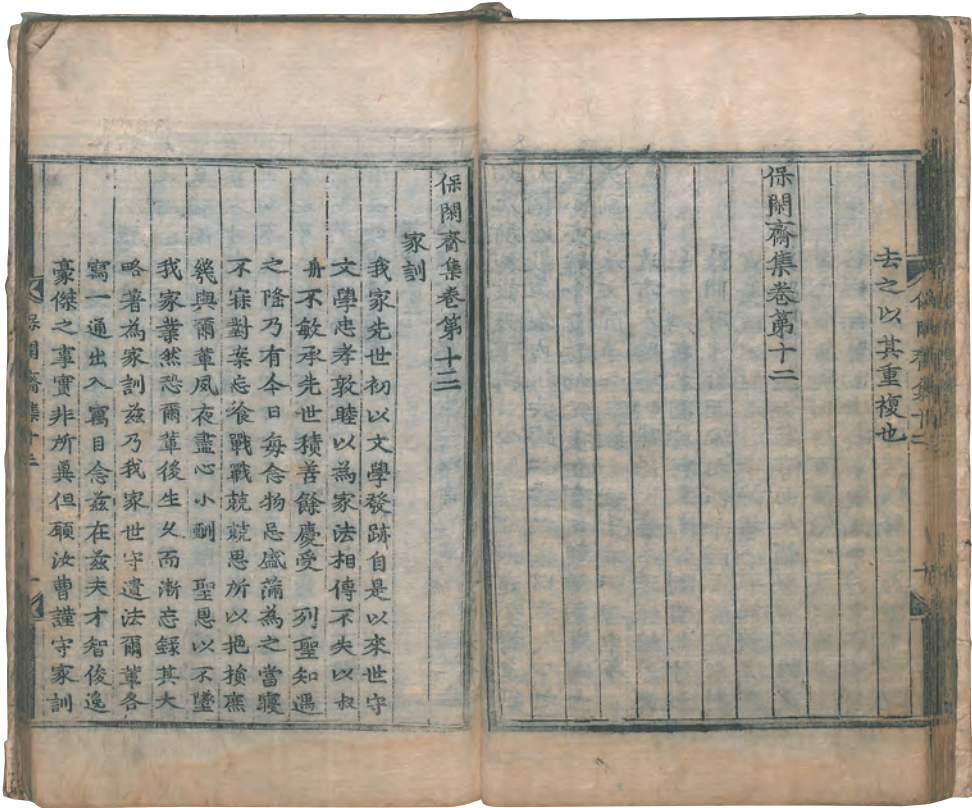 去之以其重複也
保閑齋集卷第十二
保閑齋集卷第十三
家訓
我家先世初以文學發跡自是以來世守
文學忠孝敦睦以為家法相傳不失以叔
舟不敏承先世積善餘慶受 列聖知遇
之隆乃有今日每念物忌盛滿為之當寢
不寐對案忘飡戰戰兢兢思所以挹損庶
幾與爾輩夙夜盡心小酬 聖恩以不墜
我家業然恐爾輩後生久而漸忘錄其大
略著為家訓茲乃我家世守遺法爾輩各
寫一通出入寓目念茲在茲夫才智俊逸
豪傑之事實非所冀但願汝曹謹守家訓